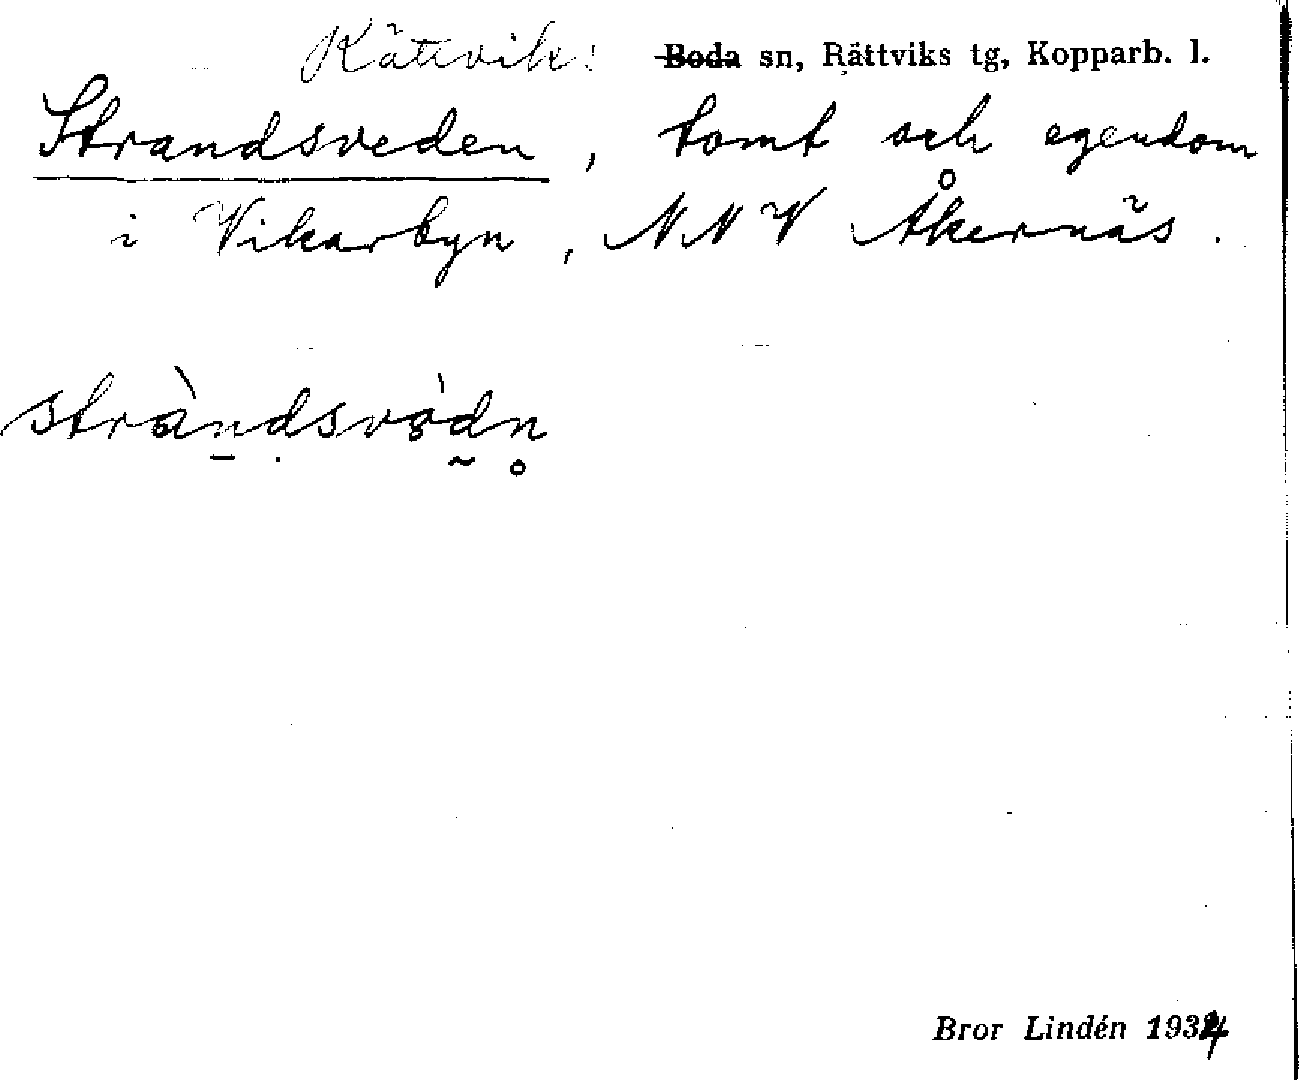 Rättvik: Boda sn, Rättviks tg, Kopparb. l.
Strandsveden, tomt och egendom
i Vikarbyn, NNV Åkernäs.
Bror Lindén 1934